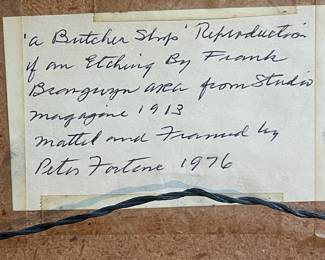 'a Butcher Shop' Reproduction
of an Etching By Frank
Brangwyn ARA from Studio
Magazine 1913
Matted and Framed by
Peter Fortune 1976